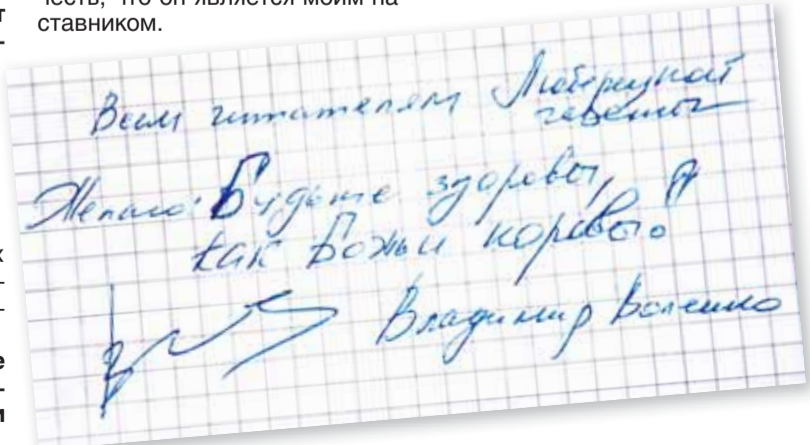 честь, что он является моим на
ставником.
Всем читателям Люберецкой
газеты
Желаю: Будьте здоровы,
как Божьи коровы.
Владимир Воленко